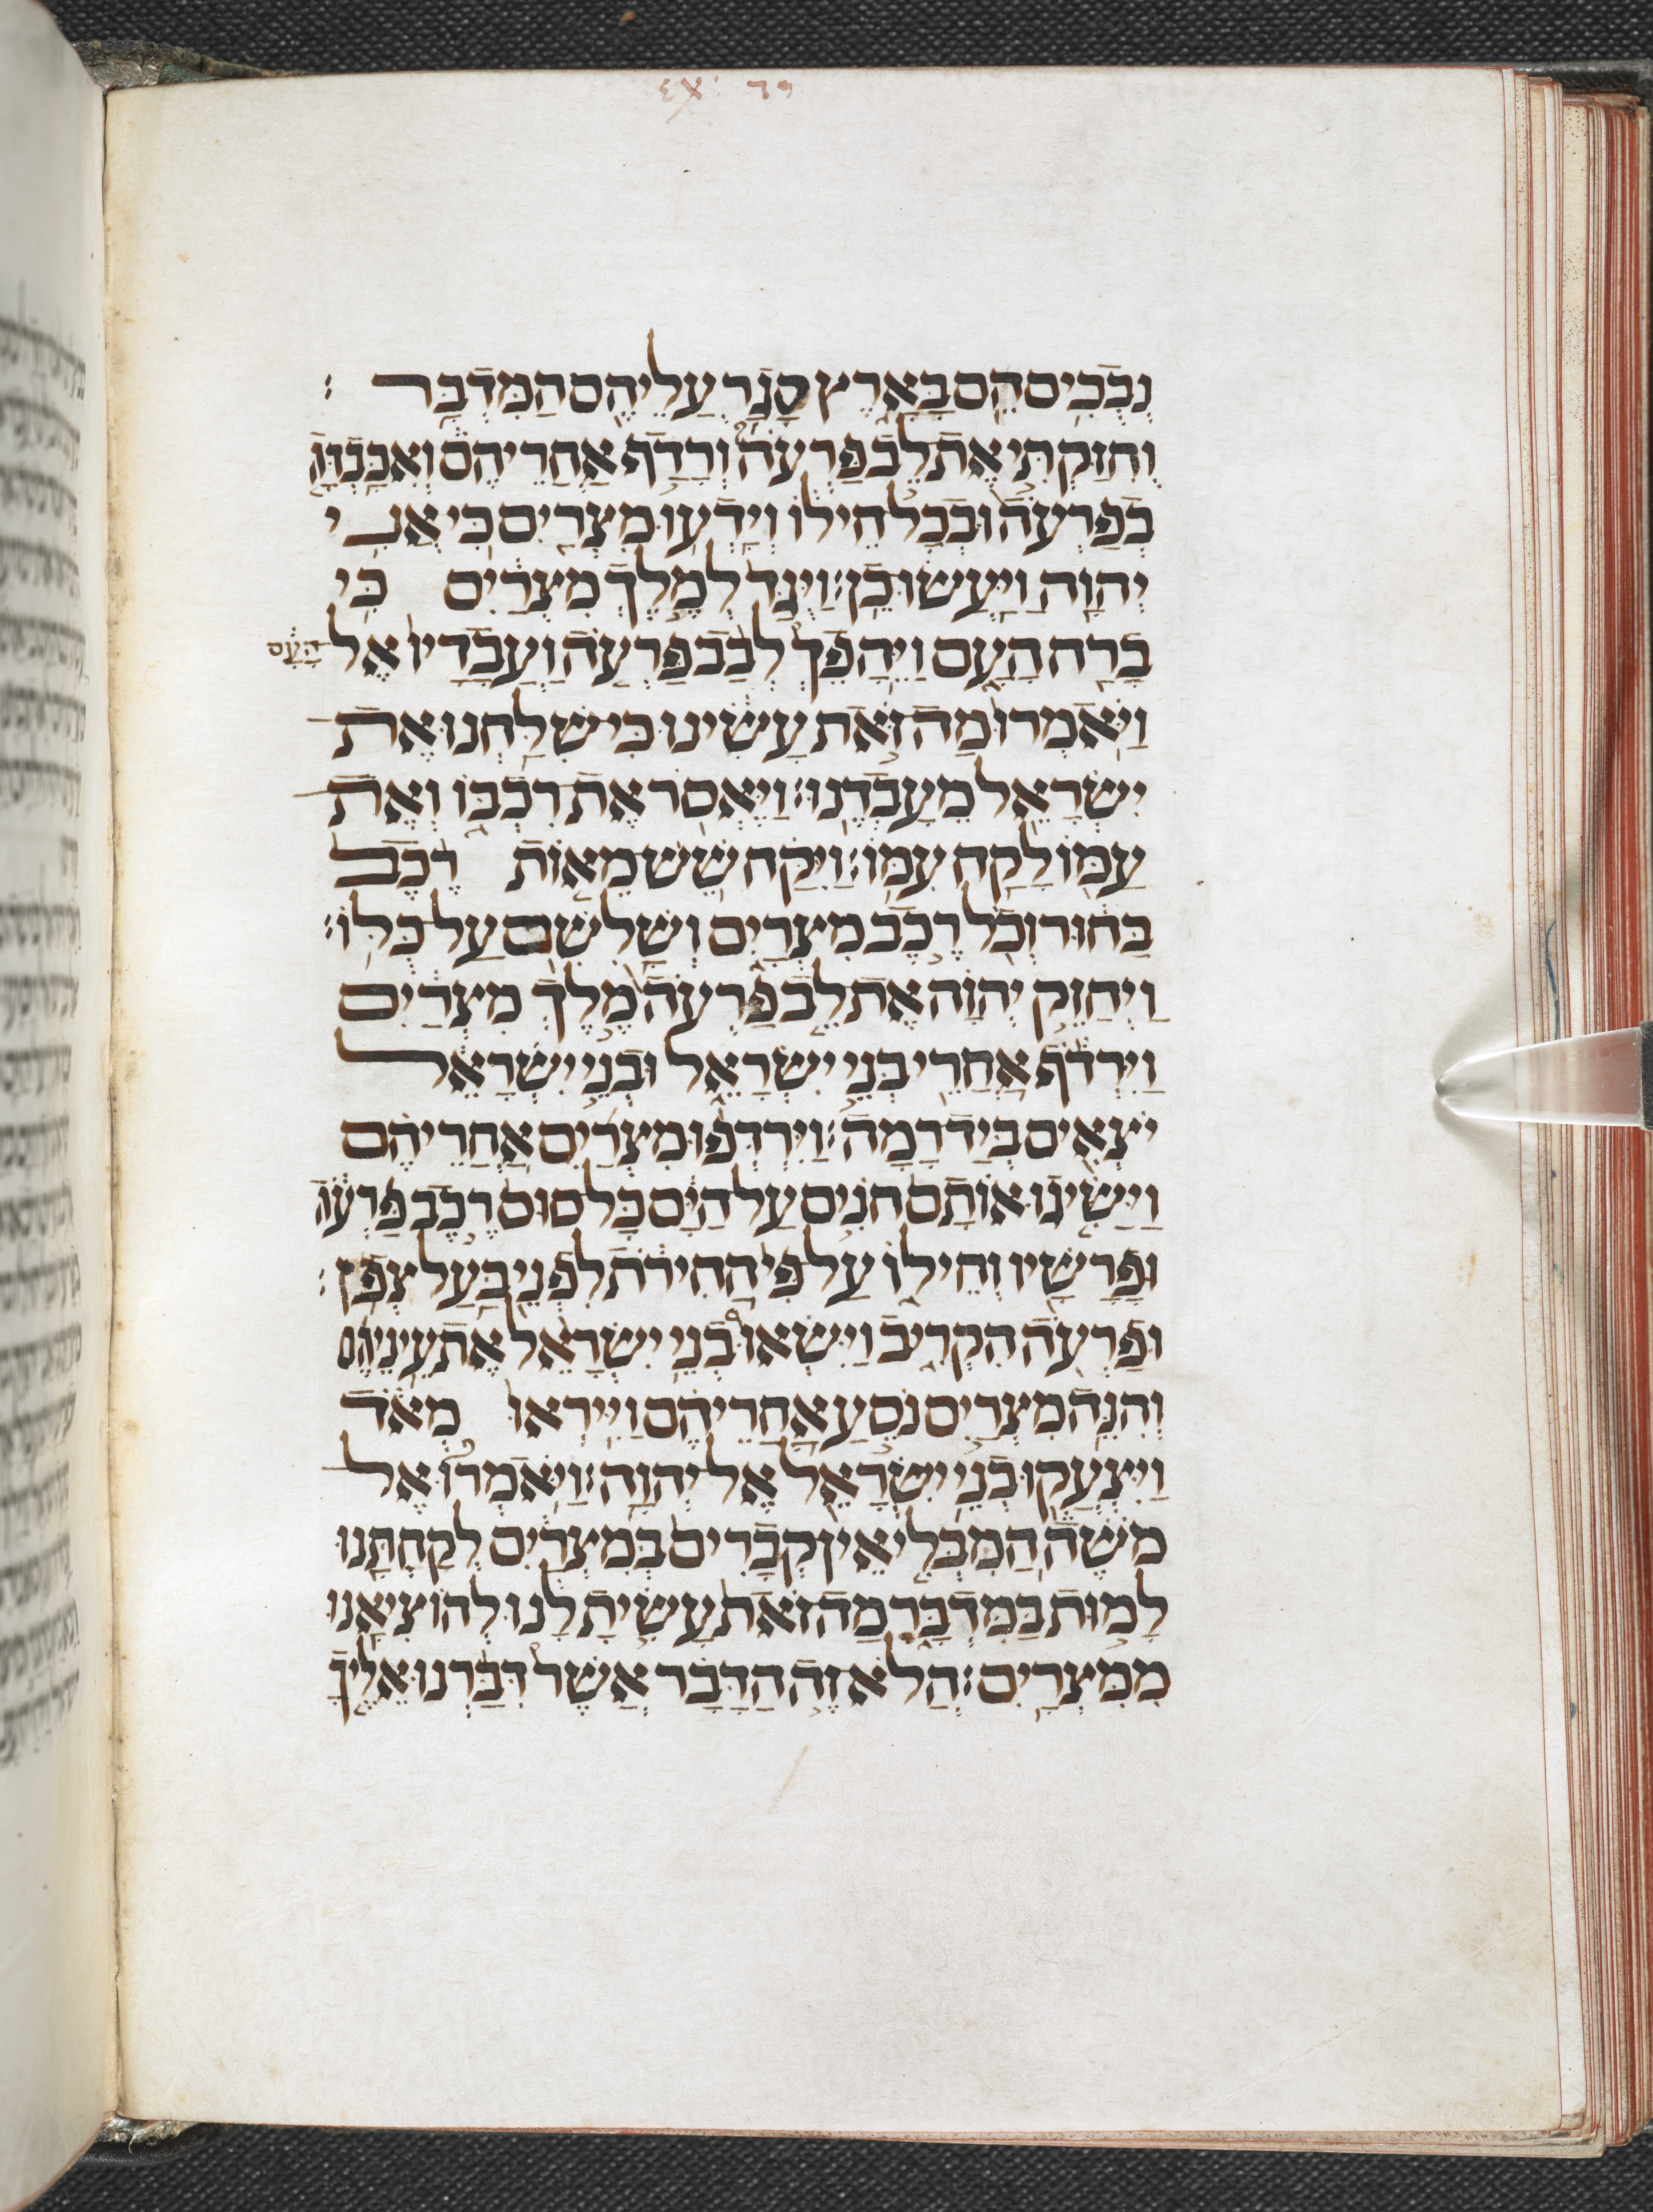 Ex: יד
נְבֻכִים הֵם בָּאָרֶץ סָגַר עֲלֵיהֶם הַמִּדְבָּר׃
וְחִזַּקְתִּי אֶת לֵב פַּרְעֹה וְרָדַף אַחֲרֵיהֶם וְאִכָּבְדָה
בְּפַרְעֹה וּבְכָל חֵילוֹ וְיָדְעוּ מִצְרַיִם כִּי אֲנִי
יְהוָה וַיַּעֲשׂוּ כֵן׃ וַיֻּגַּד לְמֶלֶךְ מִצְרַיִם כִּי
בָרַח הָעָם וַיֵּהָפֵךְ לְבַב פַּרְעֹה וַעֲבָדָיו אֶל הָעָם
וַיֹּאמְרוּ מַה זֹּאת עָשִׂינוּ כִּי שִׁלַּחְנוּ אֶת
יִשְׂרָאֵל מֵעָבְדֵנוּ׃ וַיֶּאְסֹר אֶת רִכְבּוֹ וְאֶת
עַמּוֹ לָקַח עִמּוֹ׃ וַיִּקַּח שֵׁשׁ מֵאוֹת רֶכֶב
בָּחוּר וְכֹל רֶכֶב מִצְרָיִם וְשָׁלִשִׁם עַל כֻּלּוֹ׃
וַיְחַזֵּק יְהוָה אֶת לֵב פַּרְעֹה מֶלֶךְ מִצְרַיִם
וַיִּרְדֹּף אַחֲרֵי בְּנֵי יִשְׂרָאֵל וּבְנֵי יִשְׂרָאֵל
יֹצְאִים בְּיָד רָמָה׃ וַיִּרְדְּפוּ מִצְרַיִם אַחֲרֵיהֶם
וַיַּשִּׂיגוּ אוֹתָם חֹנִים עַל הַיָּם כָּל סוּס רֶכֶב פַּרְעֹה
וּפָרָשָׁיו וְחֵילוֹ עַל פִּי הַחִירֹת לִפְנֵי בַּעַל צְפֹן׃
וּפַרְעֹה הִקְרִיב וַיִּשְׂאוּ בְנֵי יִשְׂרָאֵל אֶת עֵינֵיהֶם
וְהִנֵּה מִצְרַיִם נֹסֵעַ אַחֲרֵיהֶם וַיִּירְאוּ מְאֹד
וַיִּצְעֲקוּ בְנֵי יִשְׂרָאֵל אֶל יְהוָה׃ וַיֹּאמְרוּ אֶל
מֹשֶׁה הֲמִבְּלִי אֵין קְבָרִים בְּמִצְרַיִם לְקַחְתָּנוּ
לָמוּת בַּמִּדְבָּר מַה זֹּאת עָשִׂיתָ לָּנוּ לְהוֹצִיאָנוּ
מִמִּצְרָיִם׃ הֲלֹא זֶה הַדָּבָר אֲשֶׁר דִּבַּרְנוּ אֵלֶיךָ